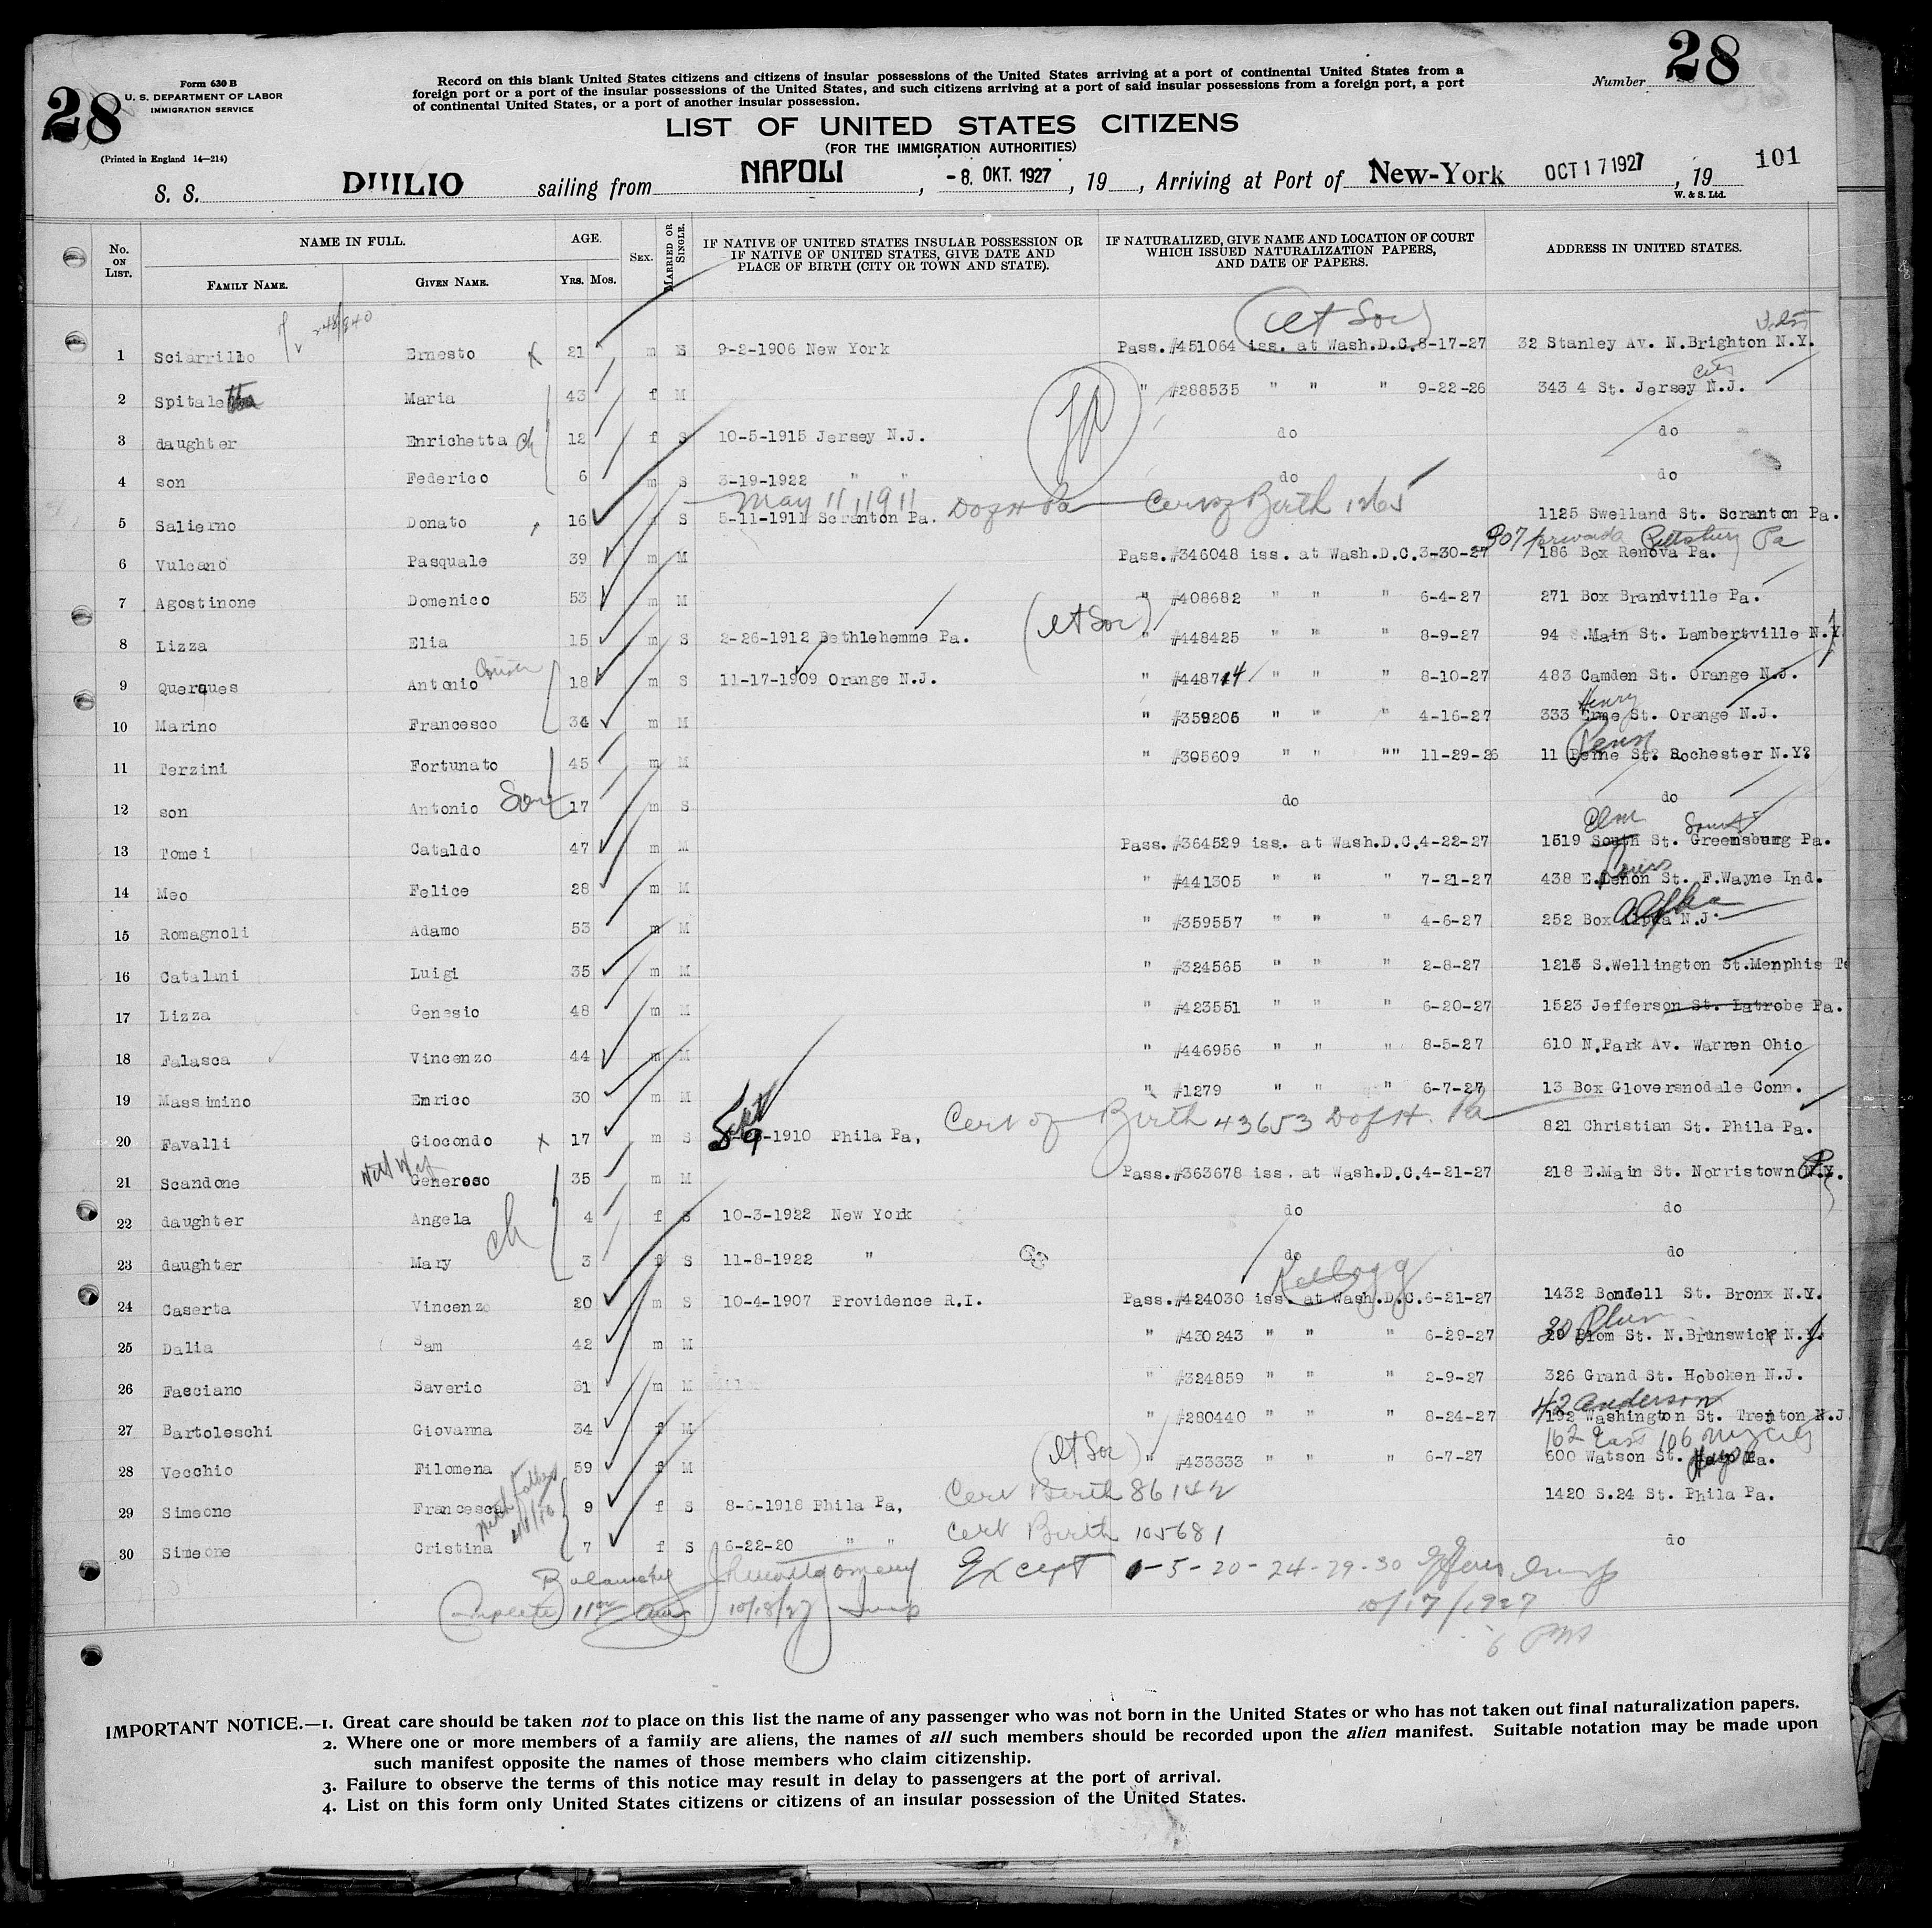 28
Form 630 B
U. S. DEPARTMENT OF LABOR
IMMIGRATION SERVICE
(Printed in England 14—214)
Record on this blank United States citizens and citizens of insular possessions of the United States arriving at a port of continental United States from a
foreign port or a port of the insular possessions of the United States, and such citizens arriving at a port of said insular possessions from a foreign port, a port
of continental United States, or a port of another insular possession.
Number 28
LIST OF UNITED STATES CITIZENS
(FOR THE IMMIGRATION AUTHORITIES)
S. S. DUILIO sailing from NAPOLI, -8. OKT. 1927, 19 , Arriving at Port of New-York OCT 17 1927, 19 101
W. & S. Ltd.
No. ON LIST. NAME IN FULL. FAMILY NAME. GIVEN NAME. AGE. YRS. MOS. SEX. MARRIED OR SINGLE. IF NATIVE OF UNITED STATES INSULAR POSSESSION OR IF NATIVE OF UNITED STATES, GIVE DATE AND PLACE OF BIRTH (CITY OR TOWN AND STATE). IF NATURALIZED, GIVE NAME AND LOCATION OF COURT WHICH ISSUED NATURALIZATION PAPERS, AND DATE OF PAPERS. ADDRESS IN UNITED STATES.
1 Sciarrillo Ernesto x 21 m S 9-2-1906 New York Pass.#451064 iss. at Wash.D.C.8-17-27 32 Stanley Av. N.Brighton N.Y.
2 Spitaletta Maria 43 f M " #288535 " " " 9-22-26 343 4 St. Jersey N.J.
3 daughter Enrichetta ch 12 f S 10-5-1915 Jersey N.J. do do
4 son Federico 6 m S 3-19-1922 " " do do
May 11, 1911 D of H Pa Cert of Birth 1265
5 Salierno Donato 16 S 5-11-1911 Scranton Pa. 1125 Swelland St. Scranton Pa.
907 Pittsburg Pa
6 Vulcano Pasquale 39 m M Pass.#346048 iss. at Wash.D.C.3-30-27 186 Box Renova Pa.
7 Agostinone Domenico 53 m M " #408682 " " " 6-4-27 271 Box Brandville Pa.
8 Lizza Elia 15 m S 2-26-1912 Bethlehemme Pa. " #448425 " " " 8-9-27 94 S.Main St. Lambertville N.Y
9 Querques Antonio Cousin 18 m S 11-17-1909 Orange N.J. " #448714 " " " 8-10-27 483 Camden St. Orange N.J.
Henry
10 Marino Francesco 34 m M " #359206 " " " 4-16-27 333 Erme St. Orange N.J.
Penn
11 Terzini Fortunato 45 m M " #305609 " " "" 11-29-26 11 Penne St. Rochester N.Y.
12 son Antonio Son 17 m S do do
Elm South
13 Tomei Cataldo 47 m M Pass. #364529 iss. at Wash.D.C.4-22-27 1519 South St. Greensburg Pa.
14 Meo Felice 28 m M " #441305 " " " 7-21-27 438 E.Lenon St. F.Wayne Ind.
Alpha
15 Romagnoli Adamo 53 m M " #359557 " " " 4-6-27 252 Box Alpha N.J.
16 Catalani Luigi 35 m M " #324565 " " " 2-8-27 1215 S.Wellington St.Menphis Te
17 Lizza Genesio 48 m M " #423551 " " " 6-20-27 1523 Jefferson St. Latrobe Pa.
18 Falasca Vincenzo 44 m M " #446956 " " " 8-5-27 610 N.Park Av. Warren Ohio
19 Massimino Enrico 30 m M " #1279 " " " 6-7-27 13 Box Gloversnodale Conn.
Sept Cert of Birth 43653 D of H. Pa
20 Favalli Giocondo x 17 m S 9-1910 Phila Pa, 821 Christian St. Phila Pa.
21 Scandone Genereso 35 m M Pass.#363678 iss. at Wash.D.C.4-21-27 218 E.Main St. Norristown N.Y.
22 daughter Angela ch 4 f S 10-3-1922 New York do do
23 daughter Mary 3 f S 11-8-1922 " do do
Kellogg
24 Caserta Vincenzo 20 m S 10-4-1907 Providence R.I. Pass.#424030 iss. at Wash.D.C.6-21-27 1432 Bondell St. Bronx N.Y.
30 Plum
25 Dalia Sam 42 m M " #430243 " " " 6-29-27 29 Plom St. N.Brunswick N.
26 Fasciano Saverio 31 m M " #324859 " " " 2-9-27 326 Grand St. Hoboken N.J.
42 Anderson
27 Bartoleschi Giovanna 34 f M " #280440 " " " 8-24-27 192 Washington St. Trenton N.J
162 East 106 Ny City
28 Vecchio Filomena 59 f M " #433333 " " " 6-7-27 600 Watson St. Pa.
29 Simeone Francesca 9 f S 8-6-1918 Phila Pa, Cert Birth 86142 1420 S.24 St. Phila Pa.
30 Simeone Cristina 7 f S 6-22-20 " " Cert Birth 105681 do
Except 1-5-20-24-29-30
JMontgomery
Complete 10/18/27 Insp
10/17/1927
6 PM
IMPORTANT NOTICE.—1. Great care should be taken not to place on this list the name of any passenger who was not born in the United States or who has not taken out final naturalization papers.
2. Where one or more members of a family are aliens, the names of all such members should be recorded upon the alien manifest. Suitable notation may be made upon
such manifest opposite the names of those members who claim citizenship.
3. Failure to observe the terms of this notice may result in delay to passengers at the port of arrival.
4. List on this form only United States citizens or citizens of an insular possession of the United States.